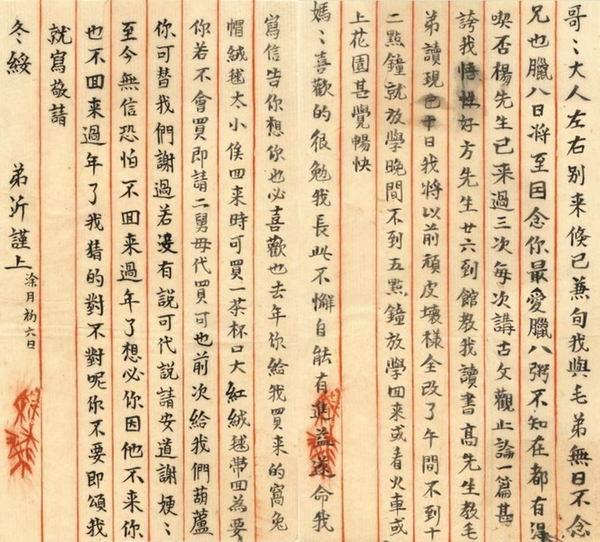 哥〻大人左右别来倏已兼旬我與毛弟無日不念
兄也臘八日将至因念你最愛臘八粥不知在都有得
喫否楊先生已来過三次每次講古文觀止論一篇甚
誇我悟性好方先生廿六到館教我讀書高先生教毛
弟讀現已十日我將以前頑皮壞樣全改了午間不到十
二點鐘就放學晚間不到五點鐘放學回来或看火車或
上花園甚覺暢快
媽〻喜歡的很勉我長此不懈自能有進益遂命我
寫信告你想你也必喜歡也去年你給我買来的窩兔
帽絨毬太小俟回来時可買一茶杯口大紅絨毬帶回為要
你若不會買即請二舅母代買可也前次給我們葫蘆
你可替我們謝過若沒有説可代説請安道謝㛐〻
至今無信恐怕不回来過年了想必你因他不来你
也不回来過年了我猜的對不對呢你不要即頌我
就寫敬請
冬綏
弟沂謹上
涂月初六日